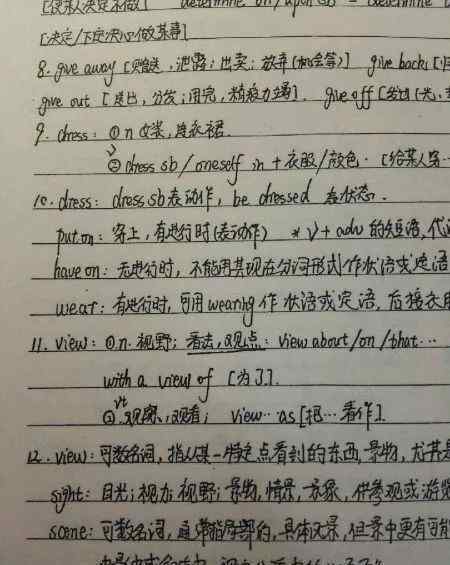 [使某人决定不做] determine on/upon sb = determine
[决定/下定决心做某事]
8. give away [赠送,泄露;出卖;放弃(机会等)] give back [归
give out [送出,分发;用完,精疲力竭]. give off [发出(光、
9. dress: ① n 女装,连衣裙.
v ② dress sb/oneself in + 衣服/颜色. [给某人穿…
10. dress: dress sb 表动作, be dressed 表状态.
put on: 穿上,有进行时(表动作) * v + adv 的短语,代词
have on: 无进行时,不能用其现在分词形式作状语或定语
wear: 有进行时,可用 wearing 作状语或定语,后接衣服
11. view: ① n. 视野;看法,观点: view about/on/that…
with a view of [为了].
vt ② 观察,观看; view…as [把…看作].
12. view: 可数名词,指从某一特定点看到的东西,景物,尤其是
sight: 目光;视力;视野;景物,情景,景象,供参观或游览
scene: 可数名词,通常指局部的,具体风景,但景中更有可能